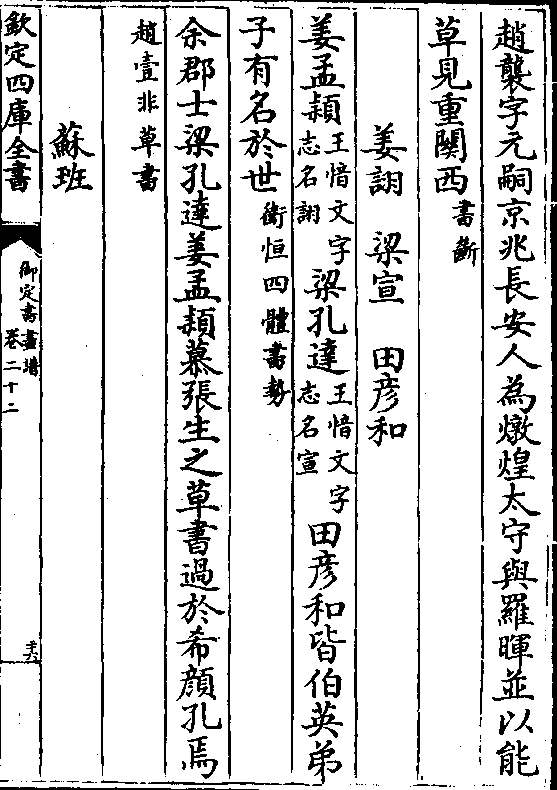 趙襲字元嗣京兆長安人為燉煌太守與羅暉並以能
草見重關西書斷
姜詡　梁宣　田彦和
姜孟頴王愔文字志名詡梁孔達王愔文字志名宣田彦和皆伯英弟
子有名於世衛恒四體書勢
余郡士梁孔達姜孟頴慕張生之草書過於希顔孔焉
趙壹非草書
蘇班
欽定四庫全書
御定書畫譜
卷二十二